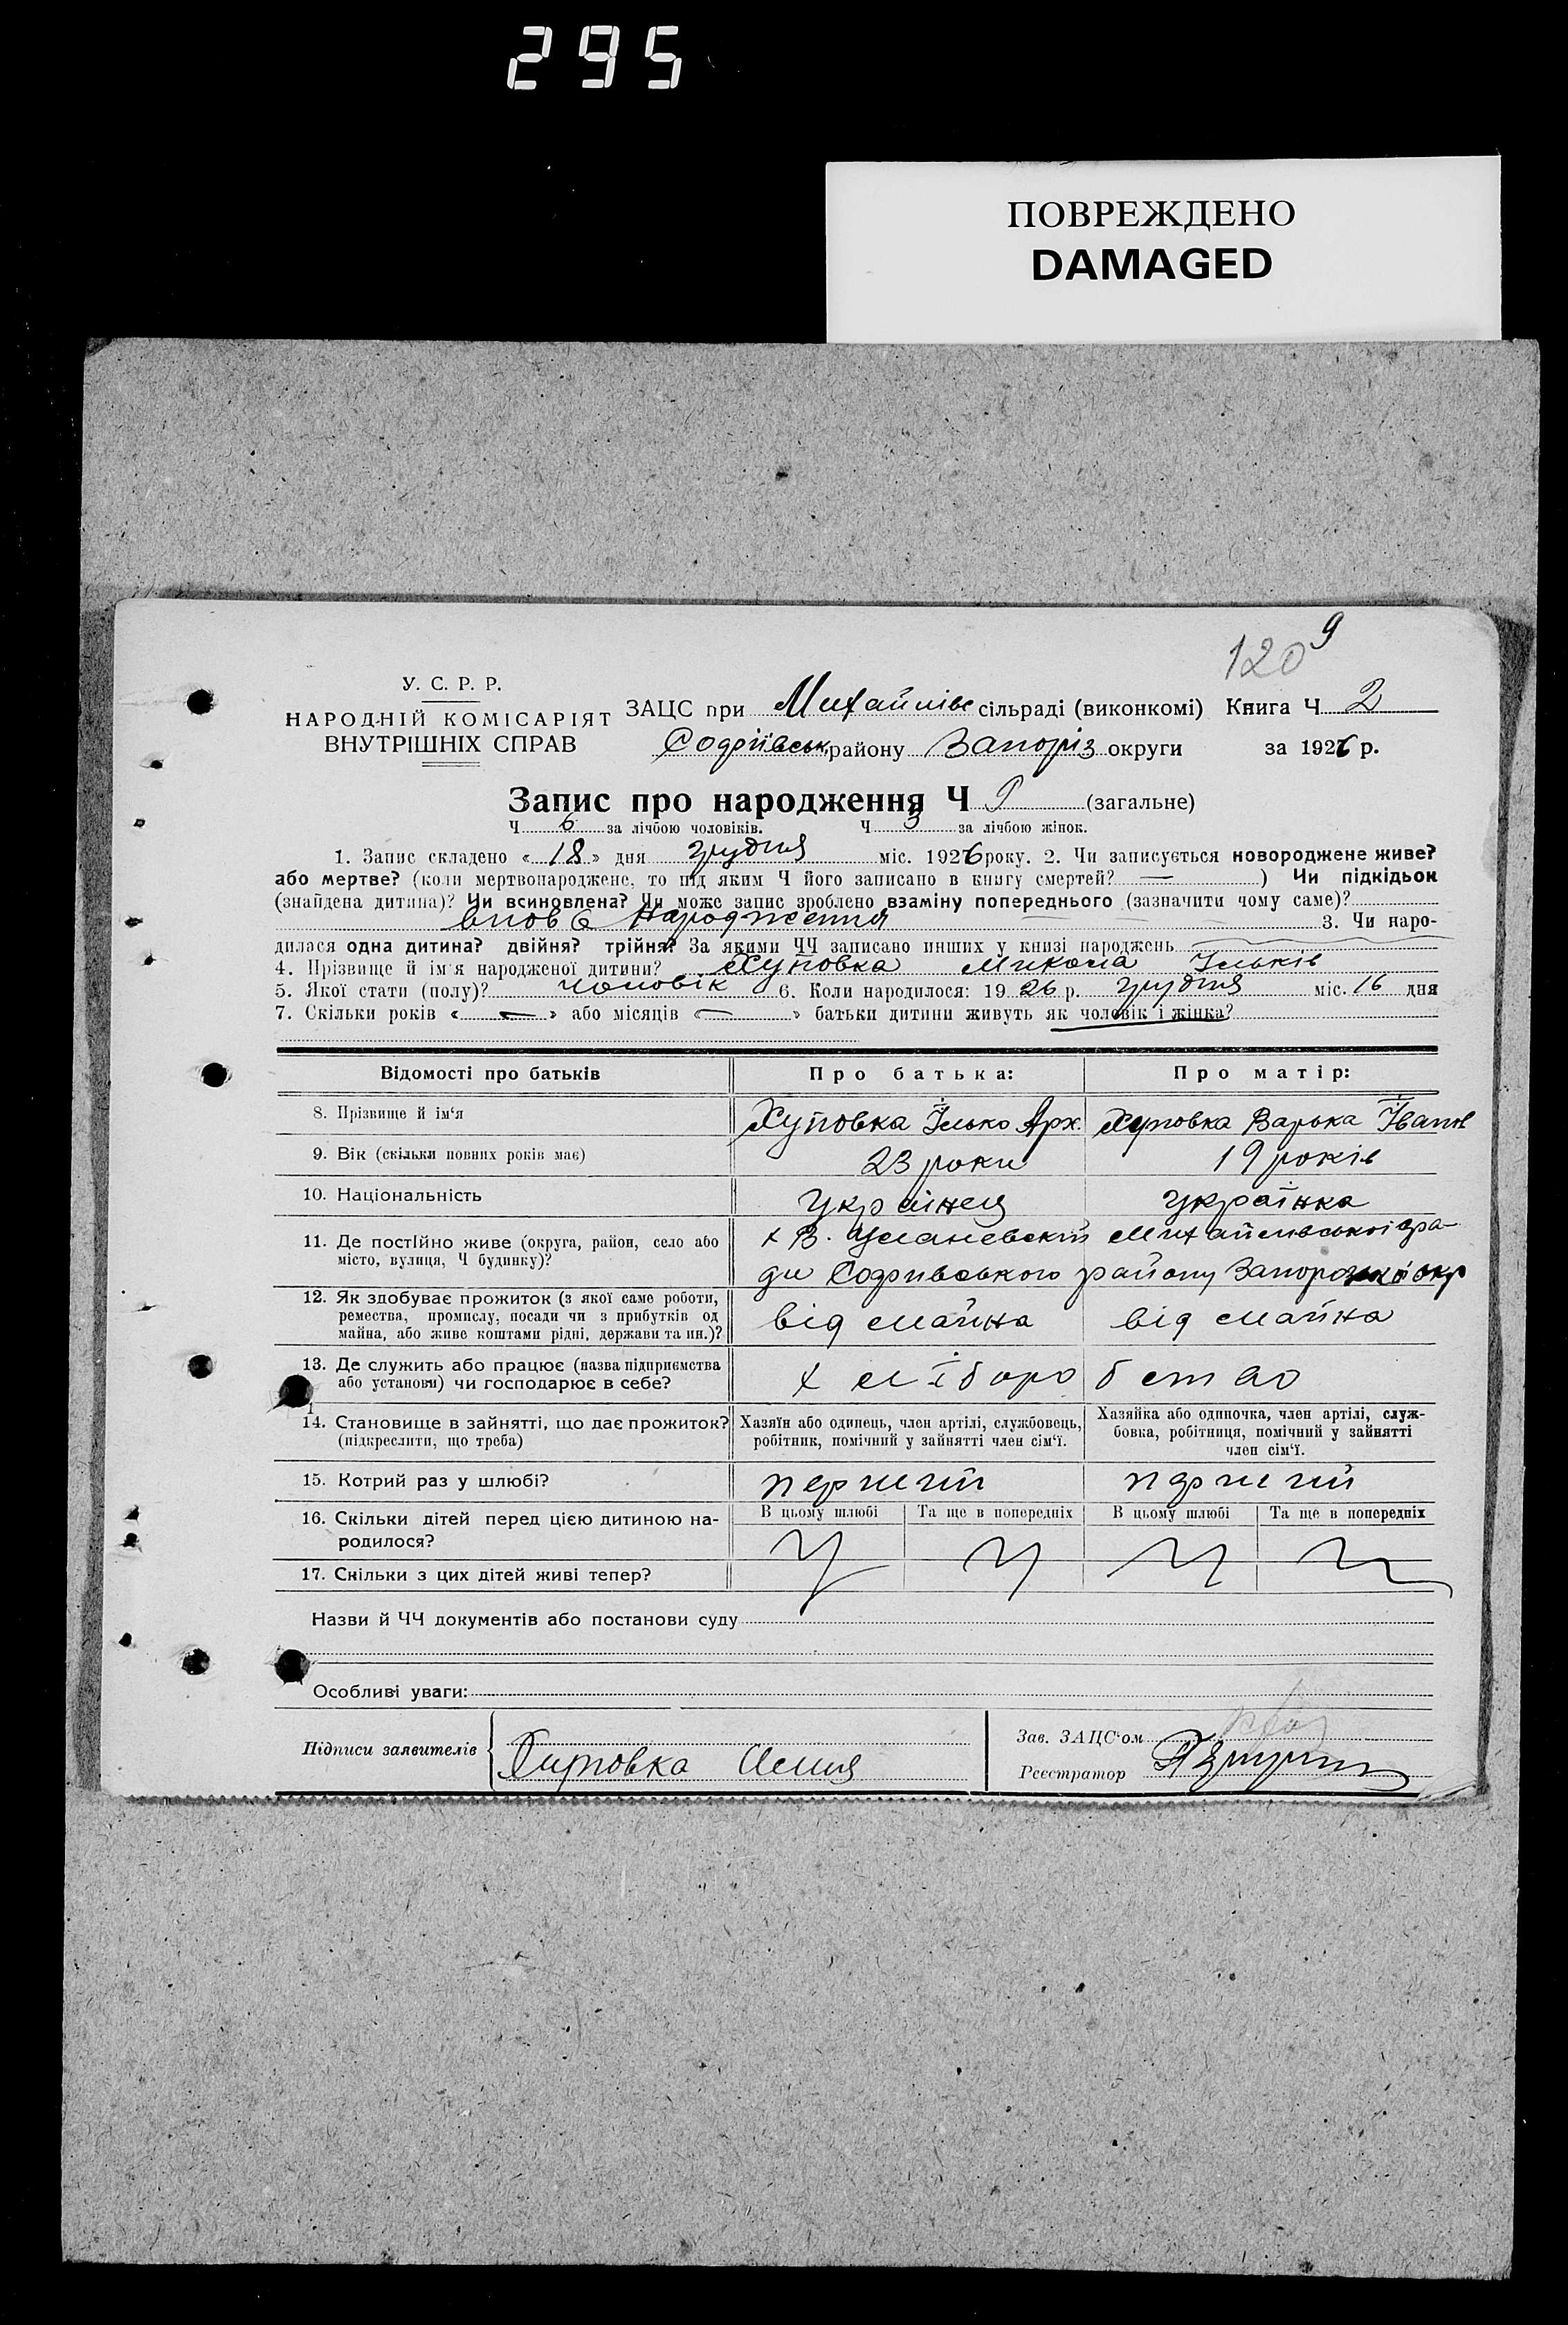 295
ПОВРЕЖДЕНО
DAMAGED
120 9
У. С. Р. Р.
НАРОДНІЙ КОМІСАРІЯТ
ВНУТРІШНІХ СПРАВ
ЗАЦС при Михайлівс сільраді (виконкомі) Книга Ч 2
Софіївськ району Запоріз округи за 1926 р.
Запис про народження Ч 9 (загальне)
Ч 6 за лічбою чоловіків. Ч 3 за лічбою жінок.
1. Запис складено « 18 » дня грудня міс. 1926 року. 2. Чи записується новороджене живе?
або мертве? (коли мертвонароджене, то під яким Ч його записано в книгу смертей? — ) Чи підкідьок
(знайдена дитина)? Чи всиновлена? Чи може запис зроблено взаміну попереднього (зазначити чому саме)?
вновь народження 3. Чи наро-
дилася одна дитина? двійня? трійня? За якими ЧЧ записано инших у книзі народжень
4. Прізвище й ім'я народженої дитини? Хуповка Микола Ільків
5. Якої стати (полу)? чоловік 6. Коли народилося: 1926 р. грудня міс. 16 дня
7. Скільки років « — » або місяців « — » батьки дитини живуть як чоловік і жінка?
Відомості про батьків Про батька: Про матір:
8. Прізвище й ім'я Хуповка Ілько Арх. Хуповка Варька Іванів
9. Вік (скільки повних років має) 23 роки 19 років
10. Національність Українец українка
11. Де постійно живе (округа, район, село або
місто, вулиця, Ч будинку)?
х В. Уманевский Михайлівської ра-
ди Софіивського району Запорозької окр
12. Як здобуває прожиток (з якої саме роботи,
ремества, промислу, посади чи з прибутків од
майна, або живе коштами рідні, держави та ин.)?
від майна від майна
13. Де служить або працює (назва підприємства
або установи) чи господарює в себе?
хліборобство
14. Становище в зайнятті, що дає прожиток?
(підкреслити, що треба)
Хазяїн або одинець, член артілі, службовець,
робітник, помічний у зайнятті член сім'ї.
Хазяйка або одиночка, член артілі, служ-
бовка, робітниця, помічний у зайнятті
член сім'ї.
15. Котрий раз у шлюбі? перший перший
16. Скільки дітей перед цією дитиною на-
родилося?
В цьому шлюбі Та ще в попередніх В цьому шлюбі Та ще в попередніх
17. Скільки з цих дітей живі тепер?
Назви й ЧЧ документів або постанови суду
Особливі уваги:
Підписи заявителів Хуповка
Зав. ЗАЦС'ом
Реєстратор